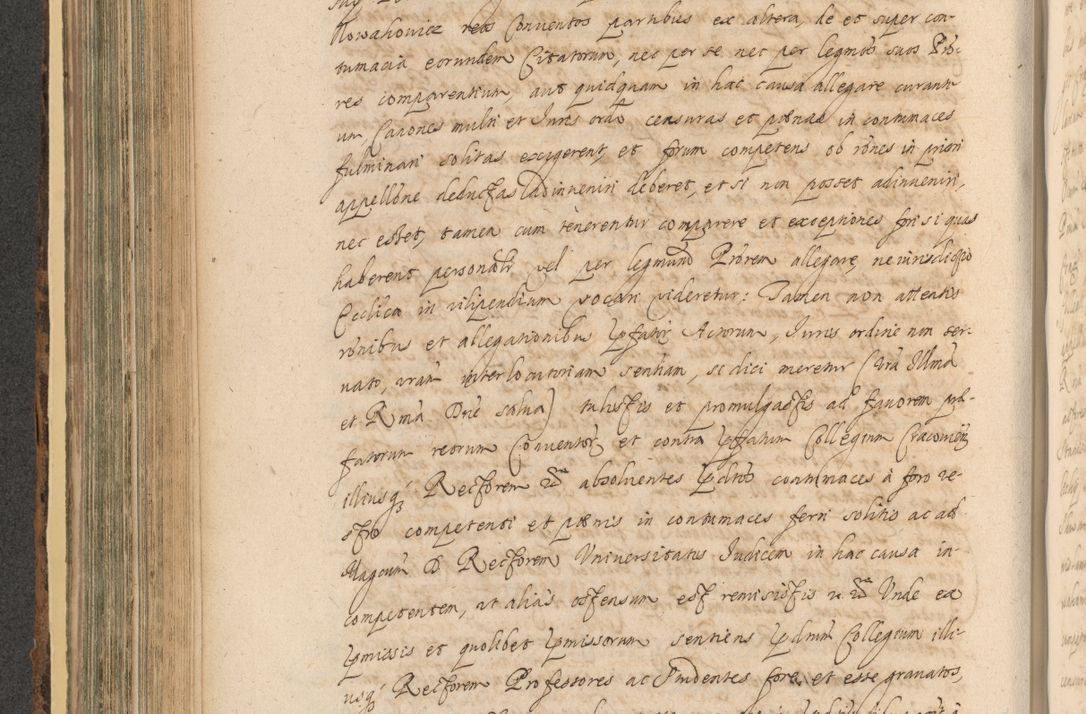 Nowahovicz reos Conventos partibus ex altera, de et super con-
tumacia eorundem Citatorum, nec per se nec per legmos suos Pro-
res comparentium, aut quidquam in hac causa allegare curant
um Canones multi et Juris ordo censuras et pænas in contumaces
fulminari solitas exigerent, et forum competens ob rones in priori
appellõne deductas adinveniri deberet, et si non posset adinveniri,
nec esset, tamen cum tenerentur comparere et exceptiones fori si quas
haberent personalr vel per legmum Prorem allegare, ne iurisdictio
Ecclica in vilipendium vocari videretur: Tamen non attentis
ronibus et allegationibus pfatis Actorum, Juris ordine non ser-
vato, vram interlocutoriam sentiam, si dici meretur (Vra Illma
et Rma Dne salva) tulistis et promulgastis ad favorem pfa-
fatorum reorum Conventor et contra pfatum Collegium Cracovien
illiusq Rectorem absolventes pditos contumaces à foro ve-
stro competenti et pænis in contumaces ferri solitis ac ad
Magcum D Rectorem Universitatis Judicem in hac causa in-
competentem, ut alias ostensum est remisistis Unde ex
pmissis et quolibet pmissorum sentiens pdtum Collegium illi-
usq Rectorem Professores ac Studentes fore et esse gravatos,